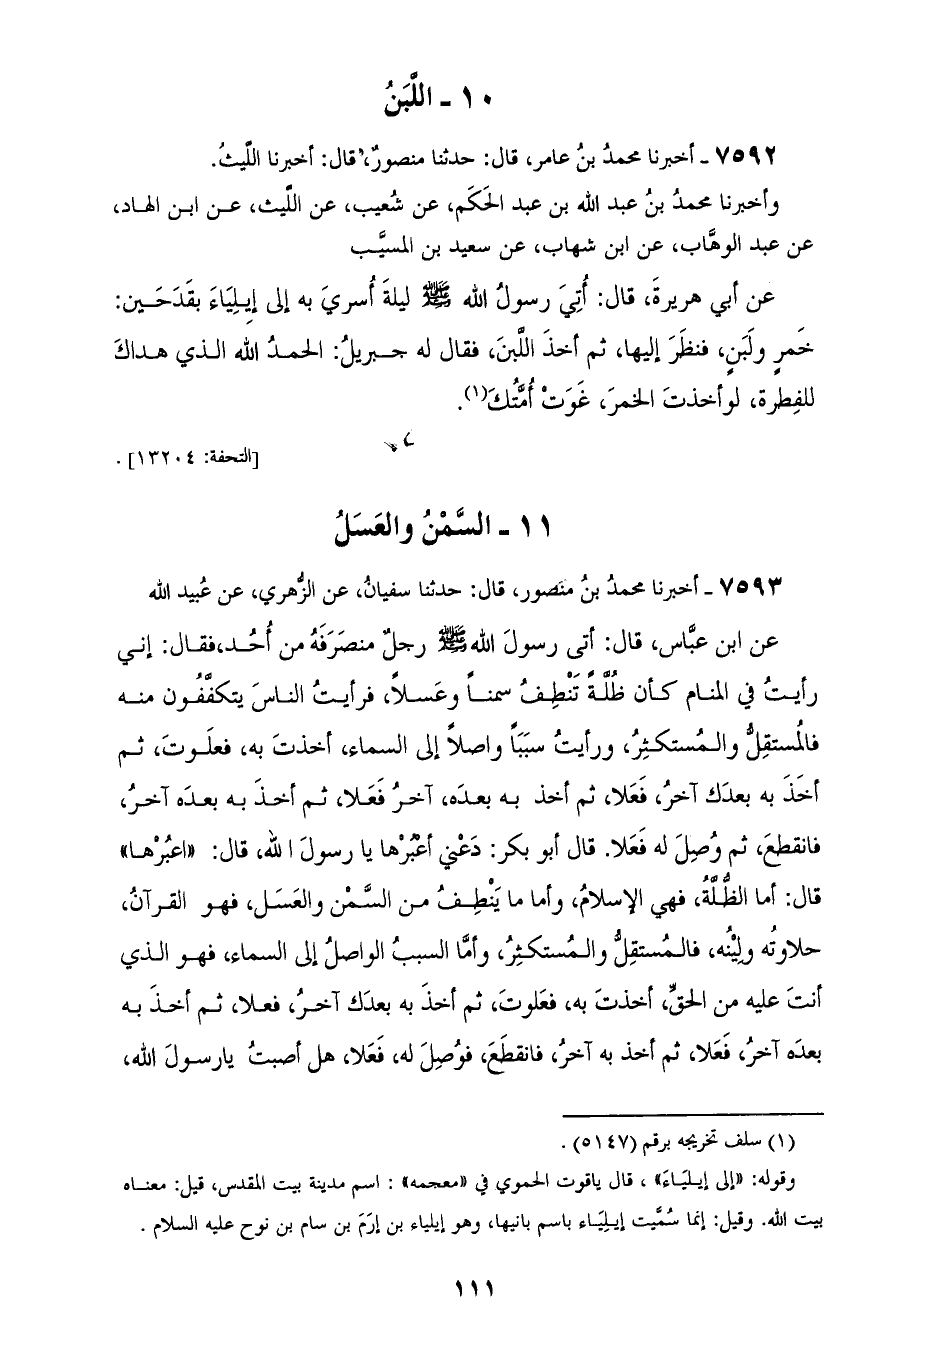 ١٠ ـ اللَّبَنُ
٧٥٩٢ ـ أخبرنا محمدُ بنُ عامر، قال: حدثنا منصورٌ، قال: أخبرنا اللَّيثُ.
وأخبرنا محمدُ بنُ عبد الله بن عبد الحَكَم، عن شُعيب، عن اللَّيث، عن ابن الهاد،
عن عبد الوهَّاب، عن ابن شهاب، عن سعيد بن المسيَّب
عن أبي هريرةَ، قال: أُتِيَ رسولُ الله ﷺ ليلةَ أُسريَ به إلى إيلِيَاءَ بقَدَحَين:
خَمرٍ ولَبَنٍ، فنظَرَ إليها، ثم أخذَ اللَّبنَ، فقال له جبريلُ: الحمدُ الله الذي هداكَ
للفِطرة، لوأخذتَ الخمرَ، غَوَتْ أُمَّتُكَ(١).
[التحفة: ١٣٢٠٤] .
١١ ـ السَّمْنُ والعَسَلُ
٧٥٩٣ ـ أخبرنا محمدُ بنُ منصور، قال: حدثنا سفيانُ، عن الزُّهري، عن عُبيد الله
عن ابن عبَّاس، قال: أتى رسولَ الله ﷺ رجلٌ منصَرَفَهُ من أُحُد،فقال: إني
رأيتُ في المنام كأن ظُلَّةً تَنْطِفُ سمناً وعَسلاً، فرأيتُ الناسَ يتكفَّفُون منه
فالمُستقِلُّ والمُستكثِرُ، ورأيتُ سبَبَاً واصلاً إلى السماء، أخذتَ به، فعلَوتَ، ثم
أخَذَ به بعدَك آخرُ، فَعَلا، ثم أخذ به بعدَه، آخرُ فَعَلا، ثم أخذَ به بعدَه آخرُ،
فانقطعَ، ثم وُصِلَ له فَعَلا. قال أبو بكر: دَعْني أعْبُرْها يا رسولَ الله، قال: «اعبُرْها»
قال: أما الظُّلَّةُ، فهي الإسلامُ، وأما ما يَنْطِفُ من السَّمْن والعَسَل، فهو القرآنُ،
حلاوتُه ولِيْنُه، فالمُستقِلُّ والمُستكثِرُ، وأمَّا السببُ الواصلُ إلى السماء، فهو الذي
أنتَ عليه من الحقِّ، أخذتَ به، فعَلوتَ، ثم أخذَ به بعدَك آخرُ، فعلا، ثم أخذَ به
بعدَه آخرُ، فَعَلا، ثم أخذ به آخرُ، فانقطَعَ، فوُصِلَ له، فَعَلا، هل أصبتُ يارسولَ الله،
(١) سلف تخريجه برقم (٥١٤٧) .
وقوله: «إلى إيلِيَاءَ» ، قال ياقوت الحموي في «معجمه» : اسم مدينة بيت المقدس، قيل: معناه
بيت الله. وقيل: إنما سُمَّيت إيلِيَاء باسم بانيها، وهو إيلياء بن إرَمَ بن سام بن نوح عليه السلام .
١١١